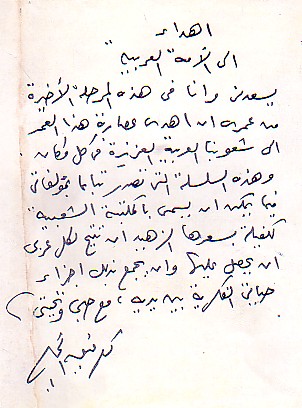 اهداء
الى الأمة العربية
يسعدني وانا في هذه المرحلة الأخيرة
من عمري ان اهدي عصارة هذا العمر
الى شعوبنا العربية العزيزة في كل مكان
وهذه السلسلة التي تصدر تباعا بمؤلفاتي
فيما يمكن ان يسمى بالمكتبة الشعبية
كفيلة بسعرها الزهيد ان تتيح لكل عربي
ان يحصل عليها وان يجمع بذلك اجزاء
حياتي الفكرية بين يديه، مع حبي وتحيتي